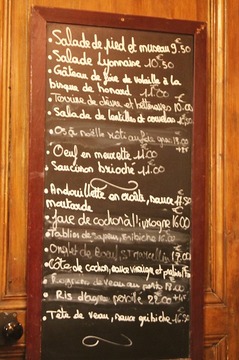 Salade de pied et museau 9.50
• Salade Lyonnaise 10.50
• Gâteau de foie de volaille à la
bisque de homard 11.00
• Terrine de lièvre et 10.00
• Salade de lentilles et cervelas
• Os à moëlle rôti au four
• Oeuf en meurette 11.00
• Saucisson brioché 11.00
• Andouillette en croûte, sauce 17.50
moutarde
• Joue de cochon à l'ivrogne 16.00
• Tablier de sapeur, gribiche 16.00
• Onglet de boeuf, St Marcellin 17.00
• Côte de cochon, sauce
• Rognons de veau au porto
• Ris d'agneau poêlé 22.00
• Tête de veau, sauce gribiche 16.50